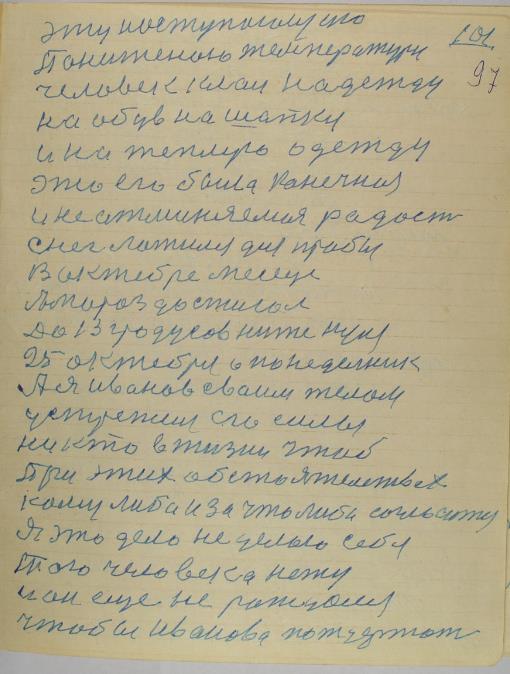 эту поступочому что
101.
97
Пониженою температури
человек клал надежду
на обув на шапку
и на теплую одежду
это его была конечная
и не атминяемая радост
снег ложился для пробы
В октебре месеце
А мороз достигал
До 13 градусов ниже нуля
25 октебря о понеделник
А я иванов сваим телом
устремил его силы
никто в жизни чтоб
При этих обстоятелствах
кому либа и за что либа
Я это дело не делаю себя
Того человека нету
и он еще не раждолся
чтобы иванова